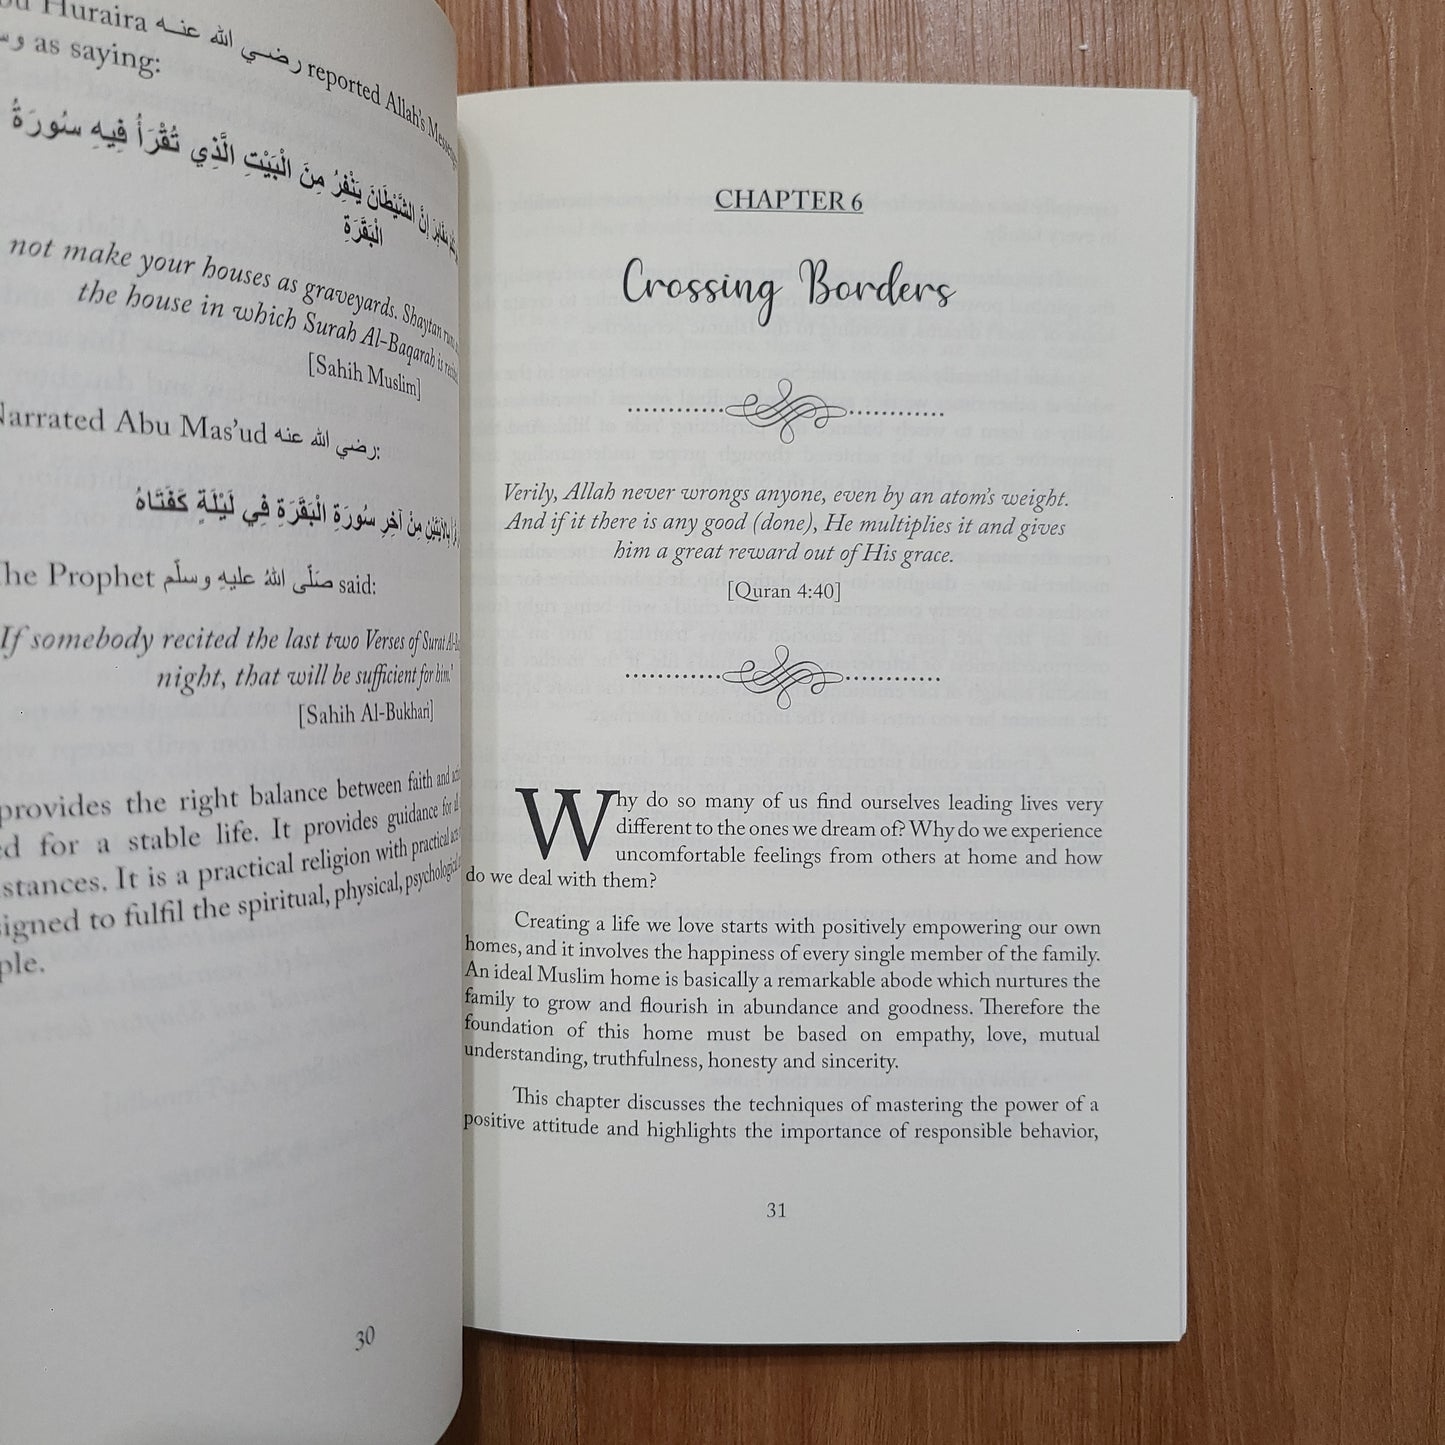 Huraira رضي الله عنه reported Allah's Messenger
as saying:
إِنَّ الشَّيْطَانَ يَنْفِرُ مِنَ الْبَيْتِ الَّذِي تُقْرَأُ فِيهِ سُورَةُ
الْبَقَرَةِ
not make your houses as graveyards. Shaytan
the house in which Surah Al-Baqarah is
[Sahih Muslim]
Narrated Abu Mas'ud رضي الله عنه:
مِنْ آخِرِ سُورَةِ الْبَقَرَةِ فِي لَيْلَةٍ كَفَتَاهُ
The Prophet صَلّى اللهُ عليهِ وسلّم said:
If somebody recited the last two Verses of Surat
night, that will be sufficient for him.'
[Sahih Al-Bukhari]
provides the right balance between faith and
for a stable life. It provides guidance for
It is a practical religion with practical
to fulfil the spiritual, physical, psychological
30
CHAPTER 6
Crossing Borders
Verily, Allah never wrongs anyone, even by an atom's weight.
And if it there is any good (done), He multiplies it and gives
him a great reward out of His grace.
[Quran 4:40]
Why do so many of us find ourselves leading lives very
different to the ones we dream of? Why do we experience
uncomfortable feelings from others at home and how
do we deal with them?
Creating a life we love starts with positively empowering our own
homes, and it involves the happiness of every single member of the family.
An ideal Muslim home is basically a remarkable abode which nurtures the
family to grow and flourish in abundance and goodness. Therefore the
foundation of this home must be based on empathy, love, mutual
understanding, truthfulness, honesty and sincerity.
This chapter discusses the techniques of mastering the power of a
positive attitude and highlights the importance of responsible behavior,
31